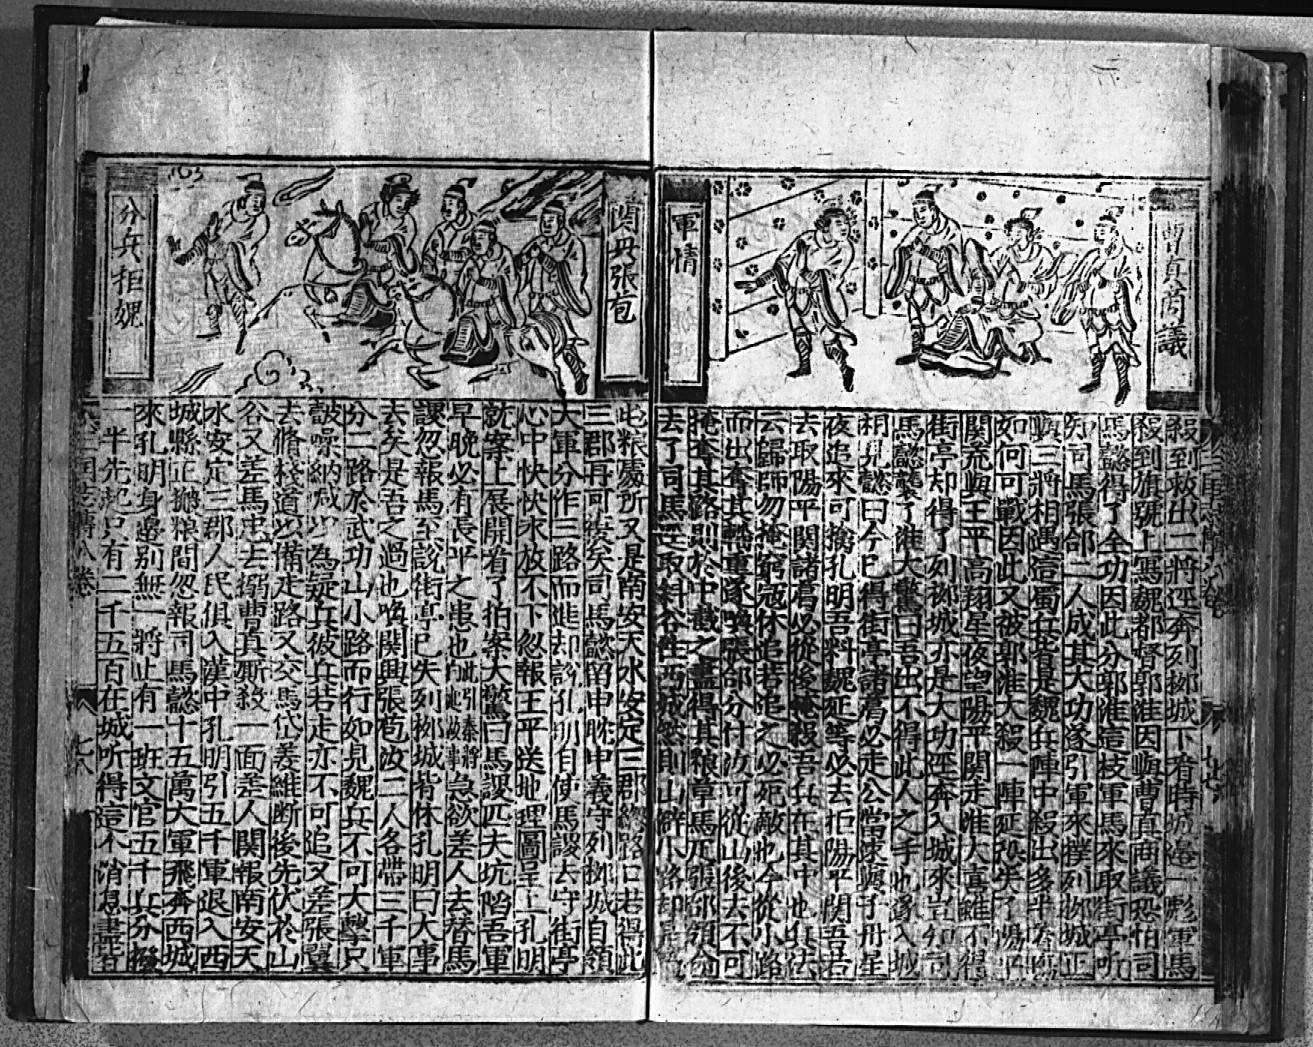 曹真商議
軍情
殺到救出二將逕奔列柳城下看時城邉一彪軍馬
殺到旗號上寫魏都督郭淮因與曹真商議恐怕司
馬懿得了全功因此分郭淮這枝軍馬來取街亭听
知司馬張郃二人成其大功遂引軍來撲列柳城正
與三將相遇這蜀兵皆是魏兵陣中殺出多半着傷
如何可戰因此又被郭淮大殺一陣延恐失了陽平
関荒與王平高翔星夜望陽平関走淮大喜雖不得
街亭却得了列柳城亦是大功逕奔入城來豈知司
馬懿襲了淮大驚曰吾出不得此人之手也遂入城
相見懿曰今已得街亭諸葛必走公當速與子丹星
夜追來可擒孔明吾料魏延等必去拒陽平関吾若
去取陽平関諸葛必從後掩殺吾兵在其中也兵法
云歸師勿掩窮寇休追若追之必死敵也今從小路
而出奪其輜重遂喚張郃分付汝可從山後去不可
掩奪其路則於中截之盡得其粮草馬疋張郃領命
去了司馬逕取斜谷徃西城然則山僻小路却是
関丹張苞
分兵拒魏
屯粮處所又是南安天水安定三郡緫路口若得此
三郡再可復矣司馬懿留申耽申義守列柳城自領
大軍分作三路而進却說孔明自使馬謖去守街亭
心中怏怏求放不下忽報王平送地理圖呈上孔明
就案上展開看了拍案大驚曰馬謖匹夫坑陷吾軍
早晚必有長平之患也此引秦將白起故事急欲差人去替馬
謖忽報馬至說街亭已失列柳城皆休孔明曰大事
去矣是吾之過也喚関興張苞汝二人各帶三千軍
分二路於武功山小路而行如見魏兵不可大擊只
鼓噪納喊少為疑兵彼兵若走亦不可追又差張翼
去脩棧道以備走路又交馬岱姜維断後先伏於山
谷又差馬忠去搦曹真厮殺一面差人関報南安天
水安定三郡人民俱入漢中孔明引五千軍退入西
城縣正搬粮間忽報司馬懿十五萬大軍飛奔西城
來孔明身邉别無一將止有一班文官五千兵分撥
一半先起只有二千五百在城听得這个消息盡皆